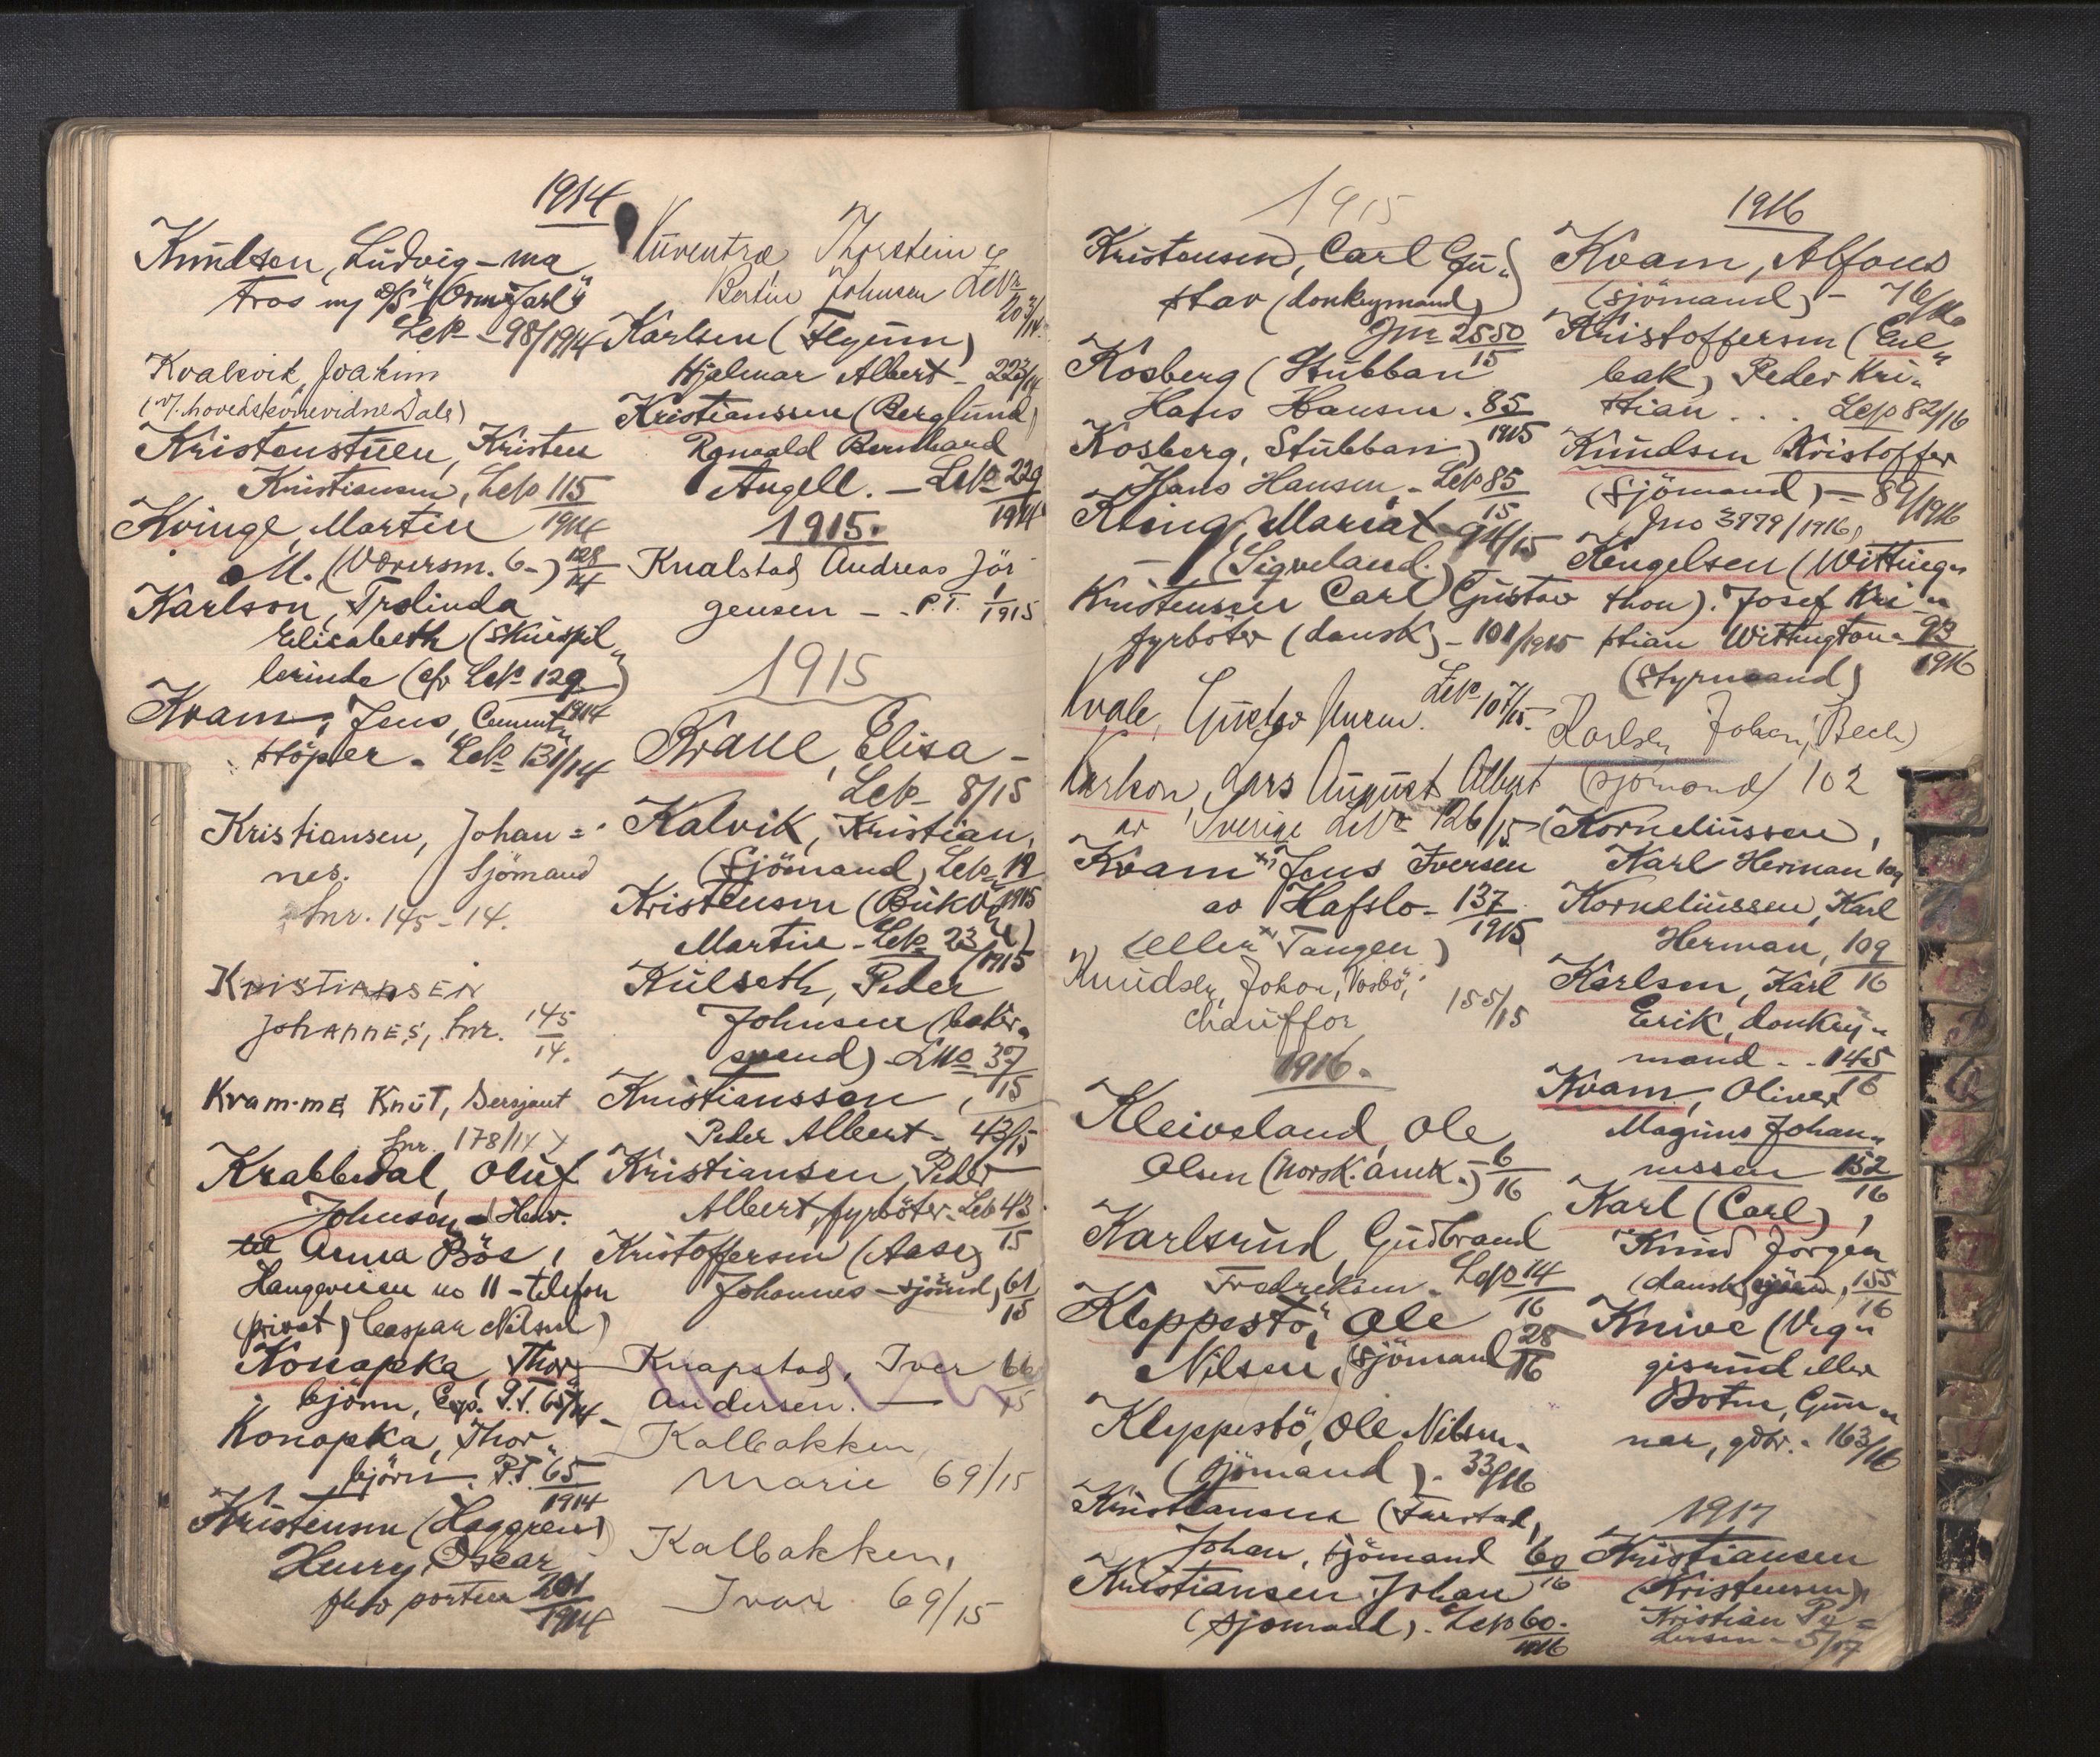 1914
Knudsen, Ludvig - ma„
tros m/ d/s "Orm Jarl"
Lep - 98/1914
Kvalevik, Joakim
(v/. hovedskvnevidne Dale)
Kristenstuen, Kristen
Kristiansen, Lep 115
1914
Kvinge, Martin
M. (Vaversm. 6-) 128
14
Karlson, Trolinda
Elisabeth (skuespil„
lerinde (cfr Lep 129)
1914
Kvam, Jens, Cement„
støper - Lep 131/14
Kristiansen, Johan=
nes. Sjömand
Lnr. 145-14.
KRISTIANSEN
JOHANNES, Lnr. 145
14.
Kramme Knut, Sersjant
Lnr. 178/14
Krabbedal, Oluf
Johnson - Henv.
til Anna Bös,
Haugeveien no 11 - telefon
(privat) Caspar Nilsen)
Konopka, Thor„
björn, Exp. P.T. 65/14
Konopka, Thor„
björn. P.T. 65
1914
Kristensen (Haggren)
Henry Oscar
portier 201
1914
Thorstein og
Bertin Johnsen Lep
203/14
Karlsen (Flyum)
Hjalmar Albert - 223/14
Kristianssen (Berglund)
Ronvald Bernhard
Angell. - Lep 229
1914
1915.
Knalstad Andreas Jör
gensen - . P.T. 1
1915
1915
Krane, Elisa -
Lep - 8/15
Kalvik, Kristian,
(Sjömand, Lep 19
1915
Kristensen (Bukvo„
Martin - Lep 23
1915
Kulseth, Peder
Johnsen (baker„
svend) - Lno 37
15
Kristianssen,
Peder Albert - 43/15
Kristiansen, Peder
Albert, fyrböter. Lep 43
15
Kristoffersen (Aase)
Johannes - sjömd, 61
15
Knapstad, Iver 66
Andersen. — 15
Kalbakken,
Marie 69/15
Kalbakken,
Ivar 69/15
1915
Kristensen, Carl Gu„
stav (donkeymand)
Jnr 2550
15
Kosberg (Stubban
Hans Hansen. 85
1915
Kosberg, Stubban)
Hans Hansen. - Lep 85
15
Kling, Maria x 94/15
— (Sigveland.
Kristensen Carl Gustav
fyrböter (dansk) - 101/1915
Kvale, Gustav Lep 107/15.
Karlson, Lars August Albert
av Sverige Lep 126/15
Kvam x) Jens Iversen
av Hafslo - 137
1915
(eller x) Tangen)
Knudsen, Johan, Vosbö,
Chauffør 155/15
1916.
Kleiveland, Ole
Olsen (norsk. amk.) - 6
16
Karlsrud, Gudbrand
Fredriksen. Lep 14
16
Kleppestö, Ole
Nilsen, (sjömand 28
16
Kleppestö, Ole Nilsen„
(sjömand). 33/16
Kristiansen (Farstad,
Johan, sjömand 60
16
Kristiansen Johan
(sjömand). Lep 60.
1916
1916
Kvam, Alfons
(sjömand) - 76/16
Kristoffersen (Eul„
bak) Peder Kri„
stian . . . Lep 82/16
Knudsen Kristoffer
(sjömand) - 89/1916
Jno 3779/1916,
Kengelsen (Witting„
thon). Josef Kri„
stian Wittington - 93
1916
(styrmand)
Karlsen Johan, (Bech)
(sjömand) 102
(Korneliussen,
Karl Herman 109
Korneliussen, Karl
Herman, 109
16
Karlsen, Karl
Erik, donkey„
mand . . 145
16
Kvam, Oliver
Magnus Johan„
nessen 152
16
Karl (Carl),
Knud Jörgen
(dansk sjömd, 155
16
Knive (Veg„
gisrund eller
Botn, Gun„
nar, gdbr. - 163/16
1917
Kristiansen
(Kristensen)
Kristian Pe=
dersen - 5/17